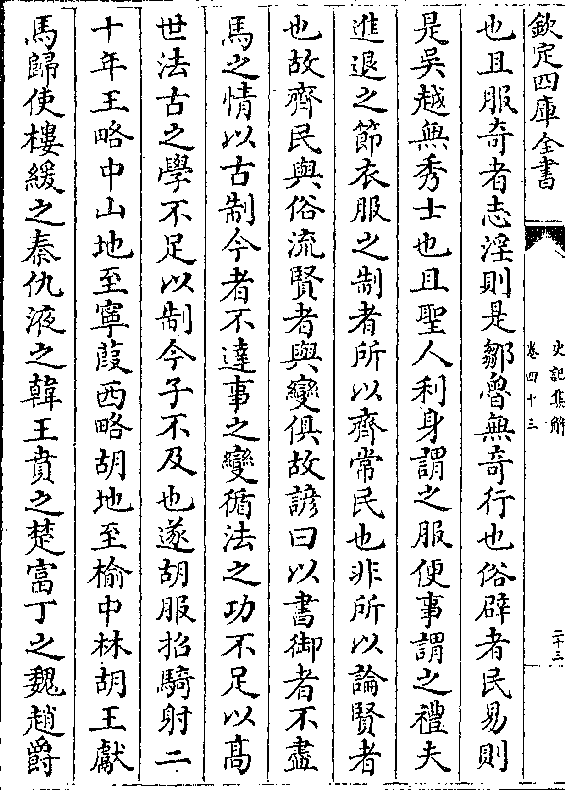 欽定四庫全書
史記集解
卷四十三
二十三
也且服奇者志淫則是鄒魯無奇行也俗辟者民易則
是吳越無秀士也且聖人利身謂之服便事謂之禮夫
進退之節衣服之制者所以齊常民也非所以論賢者
也故齊民與俗流賢者與變俱故諺曰以書御者不盡
馬之情以古制今者不達事之變循法之功不足以髙
世法古之學不足以制今子不及也遂胡服招騎射二
十年王略中山地至寧葭西略胡地至榆中林胡王獻
馬歸使樓緩之秦仇液之韓王賁之楚富丁之魏趙爵